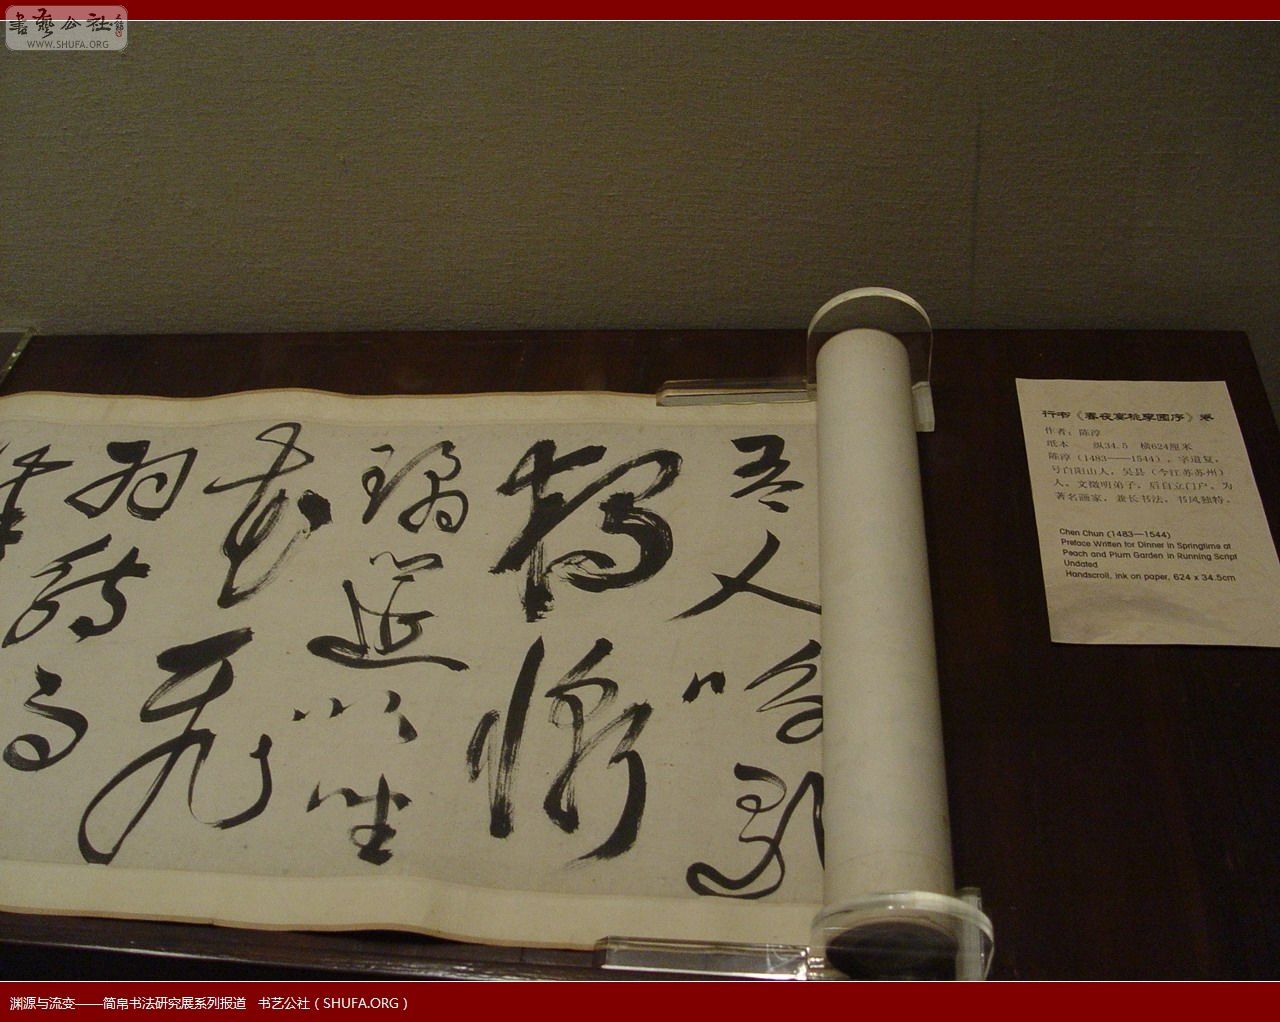 書藝公社
WWW.SHUFA.ORG
吾人咏歌
獨慚
瓊筵以坐
花飛
羽觴
行书《春夜宴桃李园序》卷
作者：陈淳
纸本 纵34.5 横624厘米
陈淳（1483——1544），字道复，
号白阳山人，吴县（今江苏苏州）
人。文徵明弟子，后自立门户。为
著名画家，兼长书法，书风独特。
Chen Chun (1483—1544)
Preface Written for Dinner in Springtime at
Peach and Plum Garden in Running Script
Undated
Handscroll, ink on paper, 624 x 34.5cm
渊源与流变——简帛书法研究展系列报道 书艺公社（SHUFA.ORG）